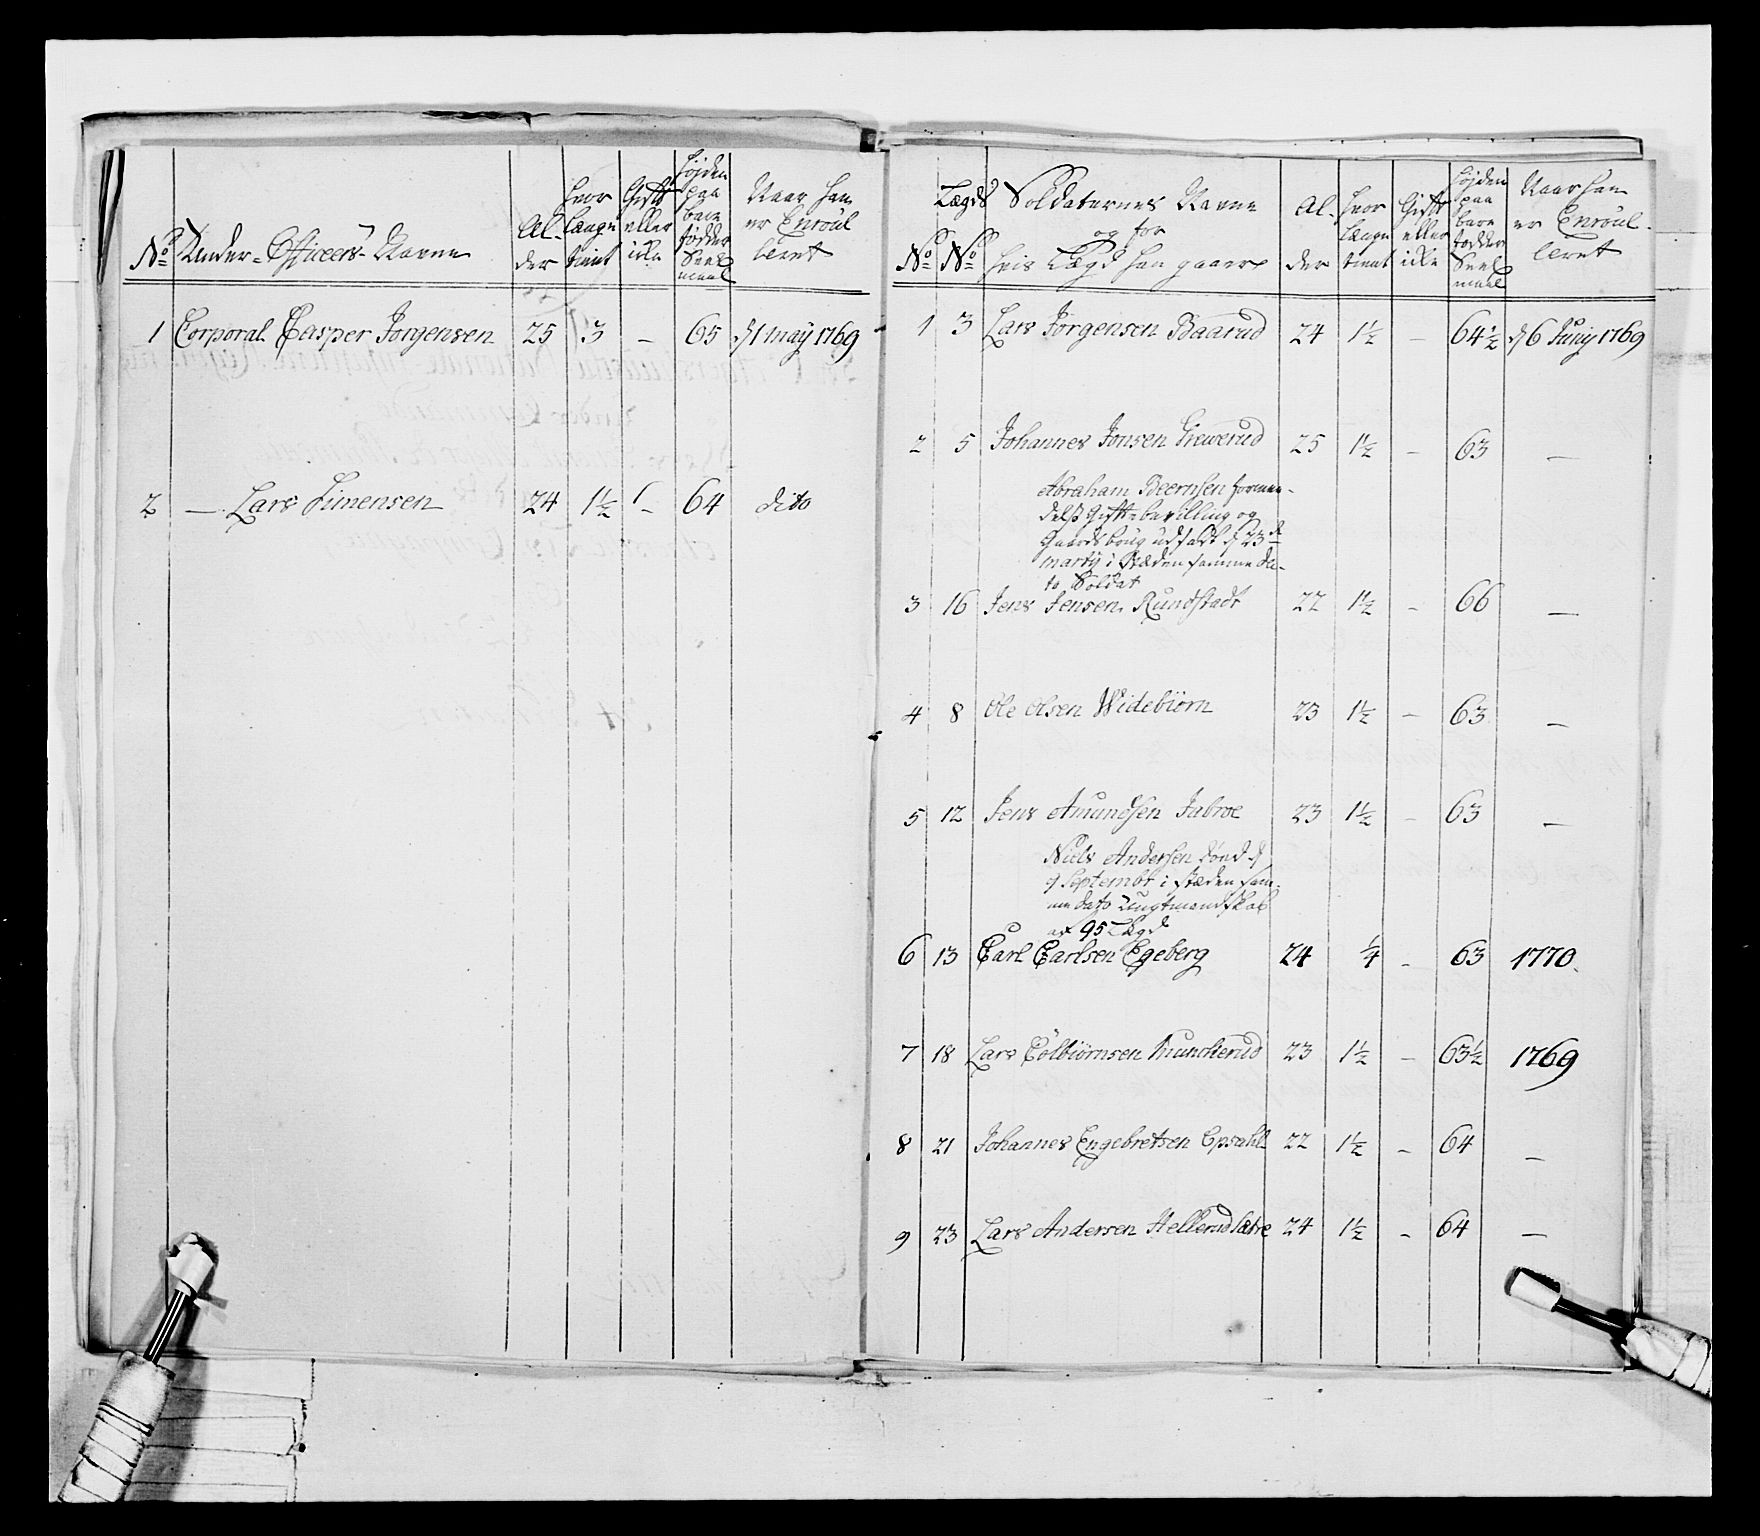 No Under-Officeers-Navne Al-der hvor længe tient Gift eller ikke Højden paa bare fødder Siel. maal Naar han er Enroulleret
1 Corporal Casper Jorgensen 25 3 — 65 d 1 may 1769
2 — Lars Simensen 24 1½ 1 – 64 dito
No Lægds No Soldaternes Navne og for hvis Lægd han gaaer Al-der hvor længe tient Gift eller ikke Højden paa bare fødder Siel. maal Naar han er Enroulleret
1 3 Lars Jörgensen Baarud 24 1½ — 64½ d 6 Juny 1769
2 5 Johannes Jonsen Grewerud 25 1½ — 63 —
Abraham Beernsen formedelst Gifte bevilling og
Gaardsbrug udsadt d 23de
marty i stæden samme da-
to Soldat
3 16 Jens Jensen Rundstadt 22 1½ – 66 —
4 8 Ole Olsen Widebiörn 23 1½ — 63 —
5 12 Jens Amundsen Jabroe 23 1½ – 63 —
Niels Andersen död d
9 Septembr i stæden sam-
me dato Ungtmandskab
af 95 Lægd
6 13 Carl Carlsen Egeberg 24 ¼ – 63 1770
7 18 Lars Colbiörnsen Munckerud 23 1½ – 63½ 1769
8 21 Johannes Engebretsen Opsahl 22 1½ – 64 —
9 23 Lars Andersen Hellerudsætre 24 1½ – 64 —